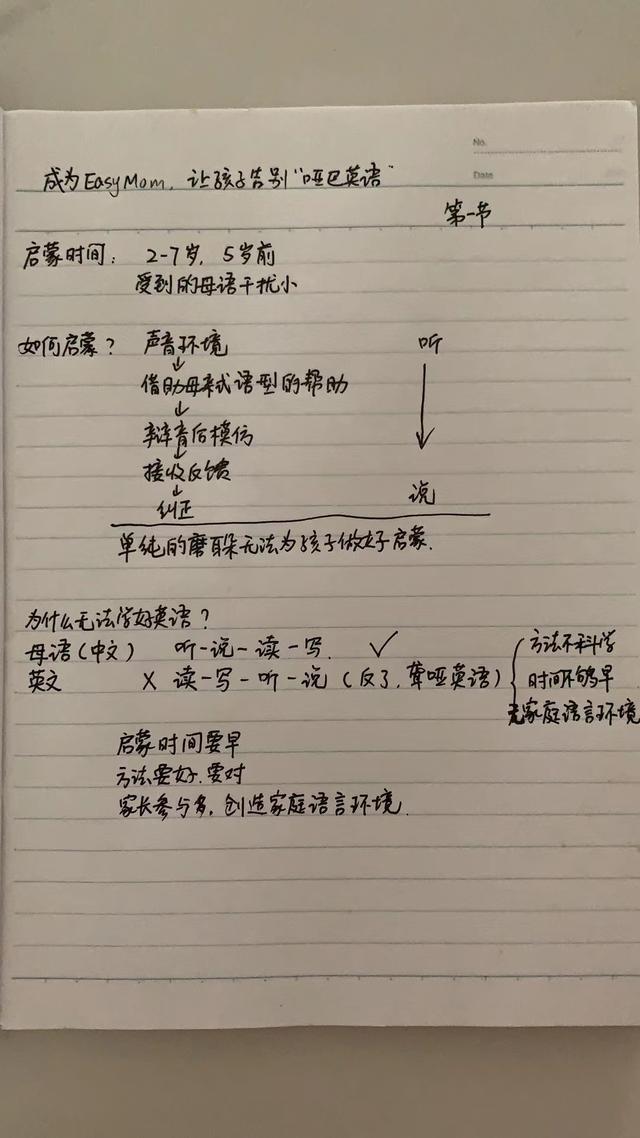 No.
Date
成为EasyMom，让孩子告别“哑巴英语”
第一节
启蒙时间： 2-7岁，5岁前
受到的母语干扰小
如何启蒙？ 声音环境 听
↓
借助母亲式语型的帮助
↓
辩音后模仿
↓
接收反馈
↓
纠正 说
单纯的磨耳朵无法为孩子做好启蒙.
为什么无法学好英语？
母语（中文） 听-说-读-写. ✓
英文 × 读-写-听-说（反了，聋哑英语）
方法不科学
时间不够早
无家庭语言环境
启蒙时间要早
方法要好.要对
家长参与多，创造家庭语言环境.